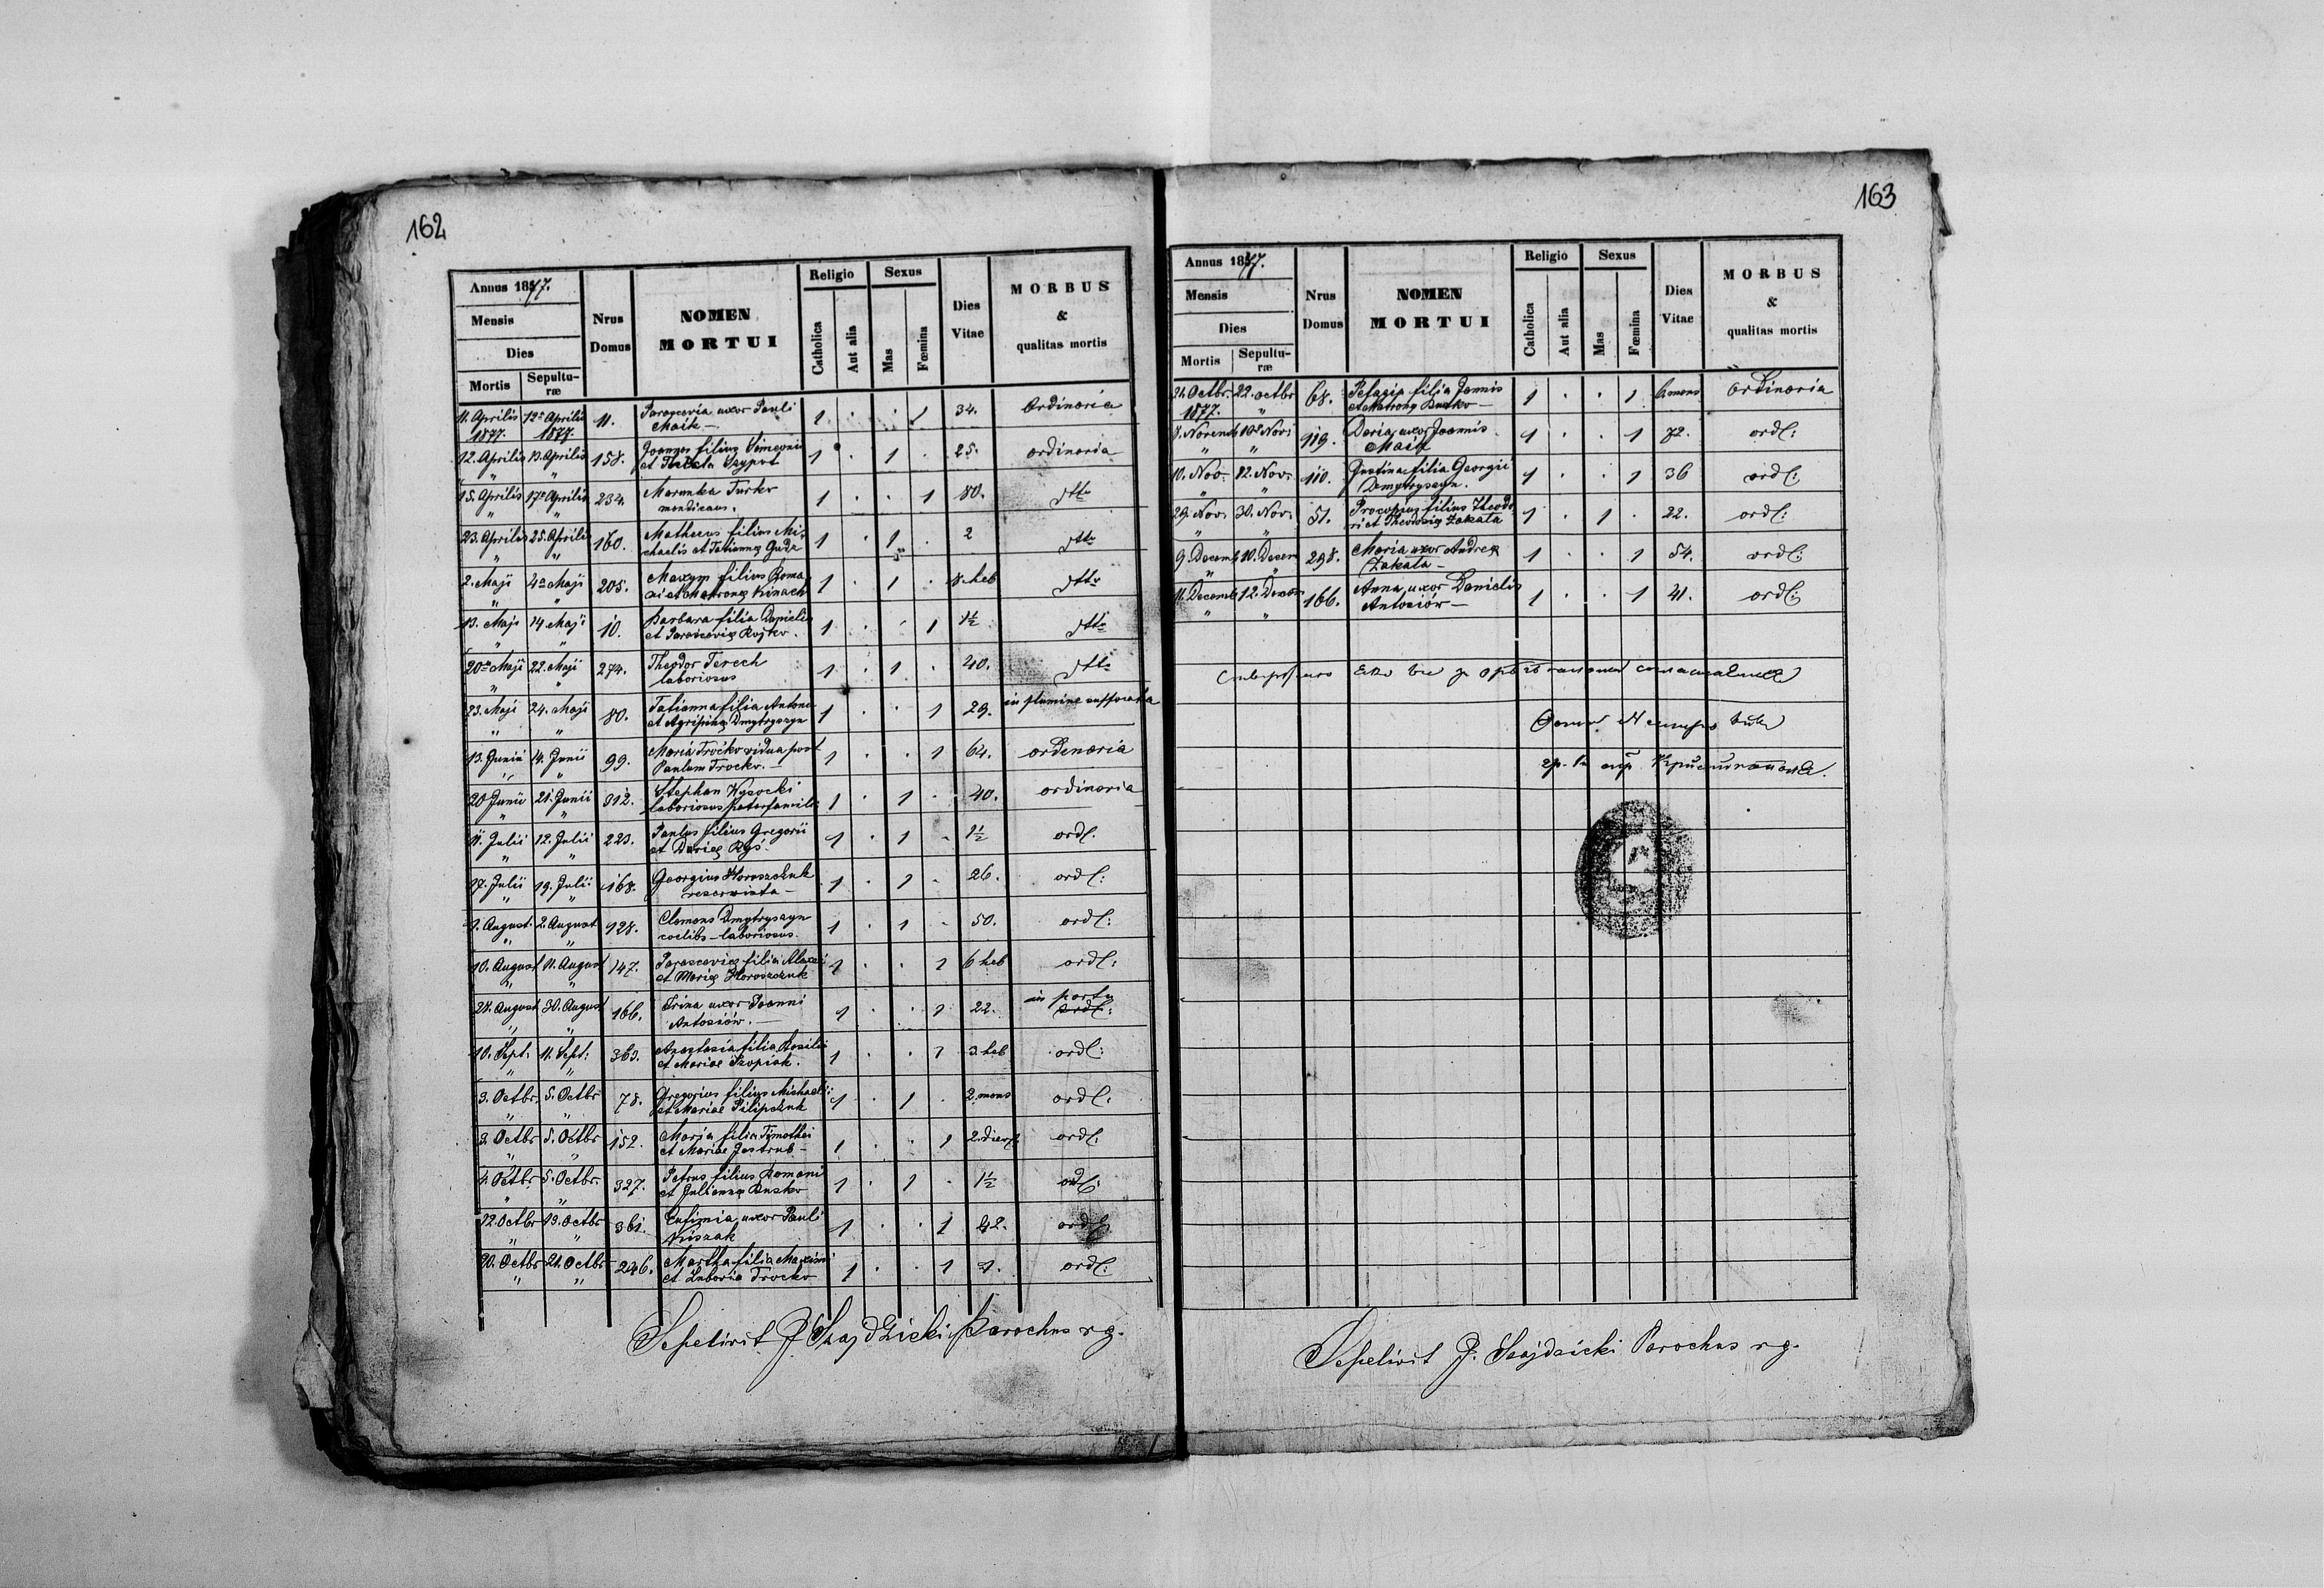 162
Annus 1877.
Mensis
Dies
Mortis
Sepulturæ
Nrus Domus
NOMEN
MORTUI
Religio
Catholica
Aut alia
Sexus
Mas
Fœmina
Dies Vitae
MORBUS
&
qualitas mortis
11. Aprilis 12 Aprilis 11. Parascevia uxor Pauli 1 . . 1 34. Ordinaria
1877. 1877. Maik —
12. Aprilis 13. Aprilis 158. Joannes filius Simeonis 1 . 1 . 25. ordinaria
" " et Szypot
15. Aprilis 17 Aprilis 234. Marunka Turko 1 . . 1 80. dtto
" " mendicans.
23. Aprilis 25. Aprilis 160. Matheus filius Mi- 1 . 1 . 2 dtto
" " chaelis et Tatianna Gudz
2. Maji 4 Maji 205. Maxym filius Roma- 1 . 1 . 8. heb dtto
" " ni et Matrona Kinach
13. Maji 14. Maji 10. Barbara filia Danielis 1 . . 1 1½ dtto
" " et Parascevia Rojko.
20 Maji 22. Maji 274. Theodor Terech 1 . 1 . 40. dtto
" " laboriosus
23. Maji 24. Maji 80. Tatianna filia Antoni 1 . . 1 29. in flumine suffocata
" " et Agripina Dmytryszyn
13. Junii 14. Junii 99. Maria Troćko vidua post 1 . . 1 64. ordenaria
" " Paulum Trocko. —
20 Junii 21. Junii 312. Stephan Wysocki 1 . 1 . 40. ordinaria
" " laboriosus paterfamili:
11. Julii 12. Julii 223. Paulus filius Gregorii 1 . 1 . 1½ ord.
" " et Daria Ryś
17. Julii 19. Julii 168. Georgius Horoszczuk 1 . 1 . 26. ord:
" " reserwista —
1. August. 2. August 128. Clemens Dmytryszyn 1 . 1 . 50. ord:
" " coelibs — laboriosus.
10. August 11. August 147. Parascevia filia Alexei 1 . . 1 6 heb ord:
" " et Maria Horoszczuk
28. August 30. August 166. Irina uxor Joanni 1 . . 1 22. in partu
" " Antosiów. —
10. Sept: 11. Sept: 363. Anastasia filia Basilii 1 . . 1 3. heb ord:
" " et Mariae Szopiak.
3. Octbr. 5. Octbr 78. Gregorius filius Michaeli: 1 . 1 . 2 mens ord:
" " et Mariae Pilipczuk
3. Octbr 5. Octbr 152. Maria filia Tymothei 1 . . 1 2. dier ord:
" " et Mariae Jastrub —
4. Octbr. 5. Octbr. 327. Petrus filius Romani 1 . 1 . 1½ ord:
" " et Julianna Busko
12. Octbr 13. Octbr 361. Eufimia uxor Pauli 1 . . 1 42. ord:
" " Kiszak
20. Octbr 21. Octbr 246. Martha filia Maximi 1 . . 1 1. ord:
" " et Trocko
Sepelivit J. Szajdzicki Parochus r g.
163
Annus 1877.
Mensis
Dies
Mortis
Sepulturæ
Nrus Domus
NOMEN
MORTUI
Religio
Catholica
Aut alia
Sexus
Mas
Fœmina
Dies Vitae
MORBUS
&
qualitas mortis
21. Octbr. 22. octbr 68. Pelagia filia Joannis 1 . . 1 6 mens Ordinaria
1877. " et Matrona Busko —
8. Novemb 10 Nov: 119. Daria uxor Joannis 1 . . 1 72. ord:
" " Maik
10. Nov. 12. Nov: 110. Justina filia Georgii 1 . . 1 36 ord:
" " Dmytryszyn.
29. Nov: 30. Nov: 51. Procopius filius Theodo- 1 . 1 . 22. ord:
" " ri et Theodosia Zakala
9. Decemb 10. Decem 298. Maria uxor Andrea 1 . . 1 54. ord:
" " Zakala —
11. Decemb 12. Decem 166. Anna uxor Danielis 1 . . 1 41. ord:
" " Antosiów —
Sepelivit J. Szajdzicki Parochus r. g.